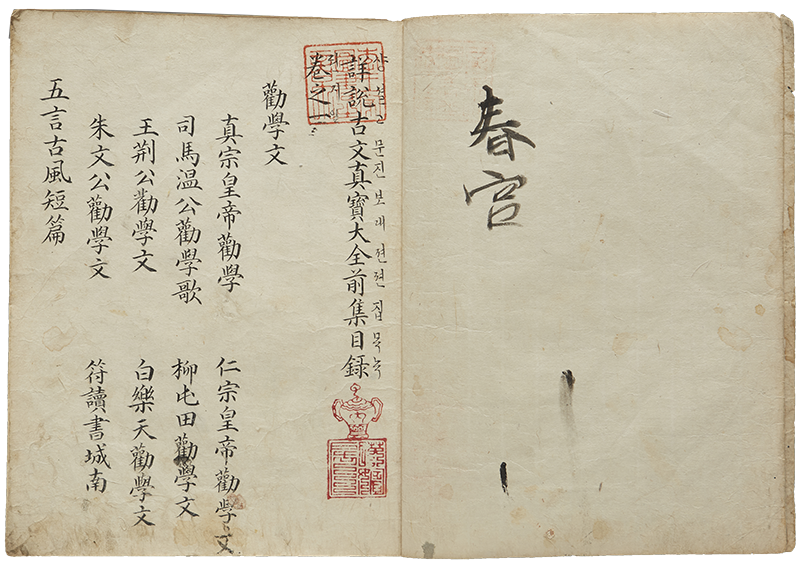 春宮
샹셜고문진보대젼젼집목녹
詳說古文真寶大全前集目錄
卷之一
勸學文
真宗皇帝勸學 仁宗皇帝勸學文
司馬溫公勸學歌 柳屯田勸學文
王荊公勸學文 白樂天勸學文
朱文公勸學文 符讀書城南
五言古風短篇